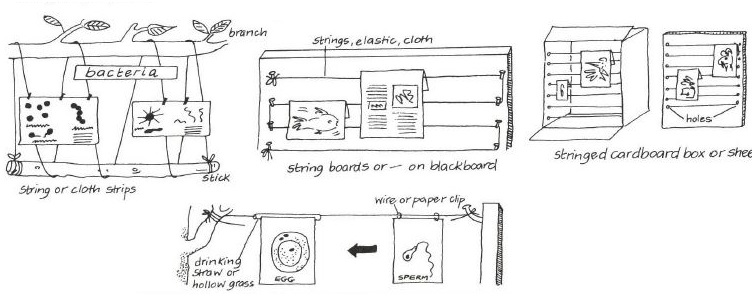 branch
bacteria
stick
string or cloth strips
strings, elastic, cloth
string boards or — on blackboard
holes
stringed cardboard box or shee
wire or paper clip
drinking
straw or
hollow grass
EGG
SPERM